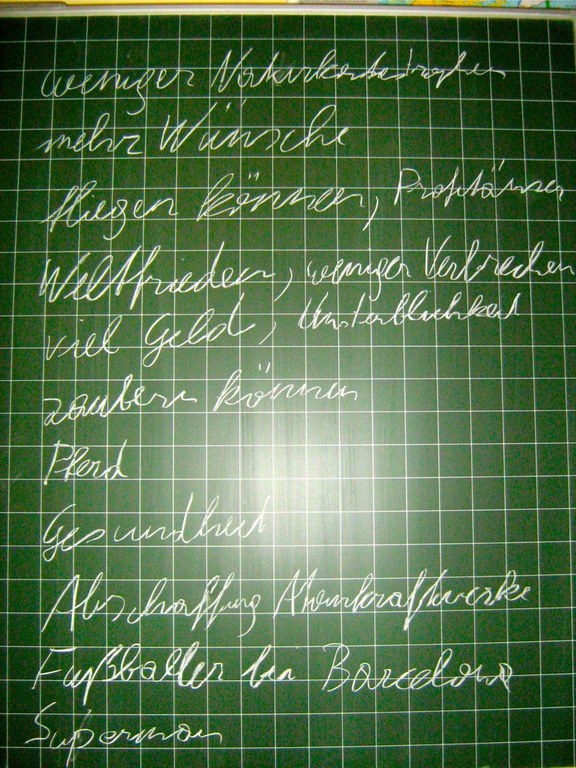 weniger Naturkatastrophen
mehr Wünsche
fliegen können, Profitänzer
Weltfrieden, weniger Verbrechen
viel Geld, Unsterblichkeit
zaubern können
Pferd
Gesundheit
Abschaffung Atomkraftwerke
Fußballer bei Barcelona
Superman